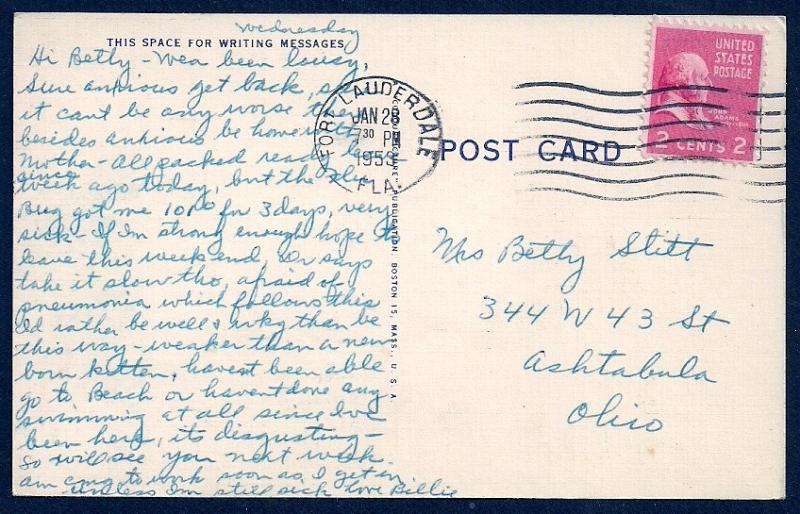 Wednesday
THIS SPACE FOR WRITING MESSAGES
Hi Betty - Wea been lousy,
Sure anxious get back, so
it cant be any worse then
besides anxious be home with
Mother - All packed ready
since
week ago today, but the
Bug got me 101º for 3 days, very
sick - If Im strong enough hope to
leave this week end, Dr says
take it slow tho, afraid of
pneumonia which follows this
Id rather be well & wkg than be
this way - weaker than a new
born kitten, havent been able
go to Beach or havent done any
swimming at all since Ive
been here, its disgusting -
so will see you next week.
am cmg to work soon as I get in
unless Im still sick love Billie
PUBLICATION, BOSTON 15, MASS., U.S.A.
FORT LAUDERDALE
JAN 28
7 30 PM
1953
FLA.
POST CARD
UNITED
STATES
POSTAGE
JOHN
ADAMS
2 CENTS 2
Mrs Betty Stitt
344 W 43 St
Ashtabula
Ohio